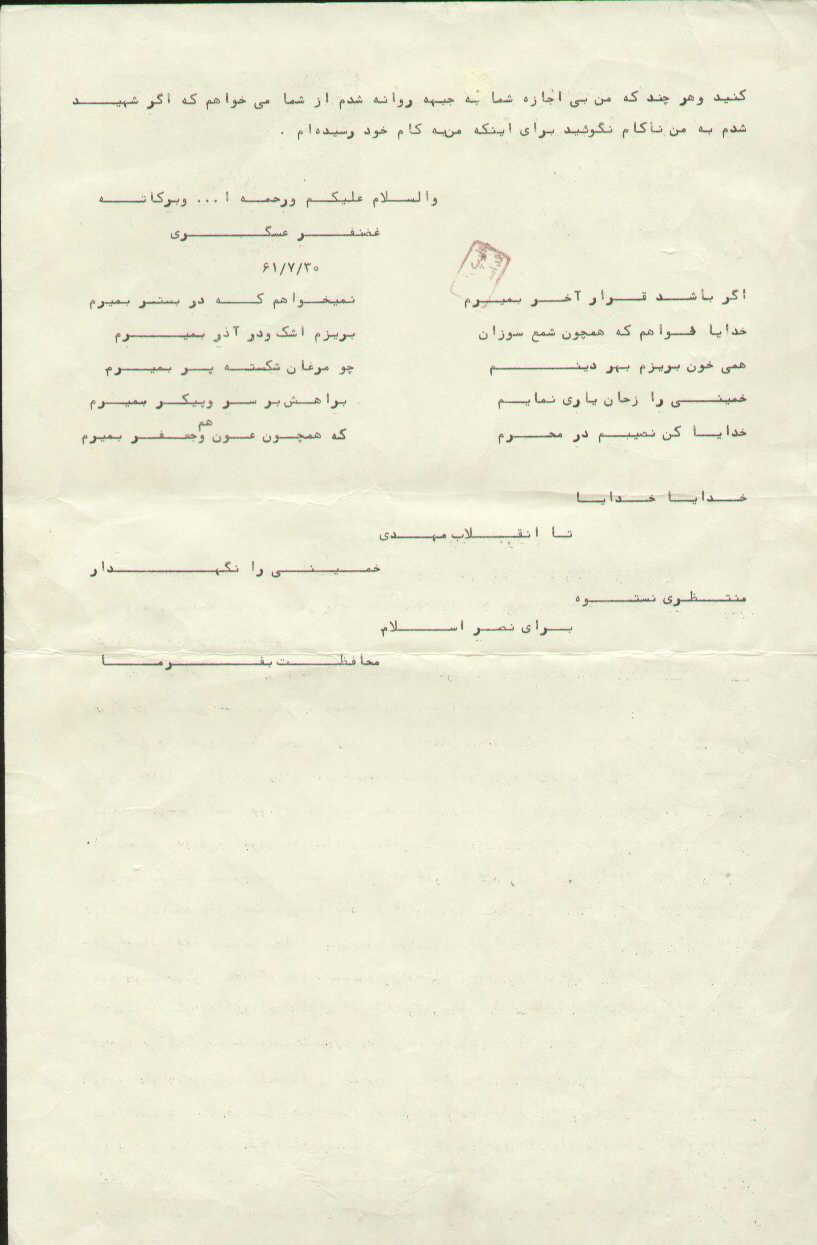 کنید وهر چند که من بی اجازه شما به جبهه روانه شدم از شما می خواهم که اگر شهید
شدم به من ناکام نگوئید برای اینکه من به کام خود رسیده‌ام .
والسلام علیکم ورحمه ا... وبرکاته
غضنفر عسگری
۶۱/۷/۳۰
اگر باشد قرار آخر بمیرم نمیخواهم که در بستر بمیرم
خدایا خواهم که همچون شمع سوزان بریزم اشک ودر آذر بمیرم
همی خون بریزم بهر دینم چو مرغان شکسته پر بمیرم
خمینی را زجان یاری نمایم براهش بر سر وپیکر بمیرم
خدایا کن نصیبم در محرم که همچون عون وجعفر هم بمیرم
خدایا خدایا
تا انقلاب مهدی
خمینی را نگهدار
منتظری نستوه
برای نصر اسلام
محافظت بفرما